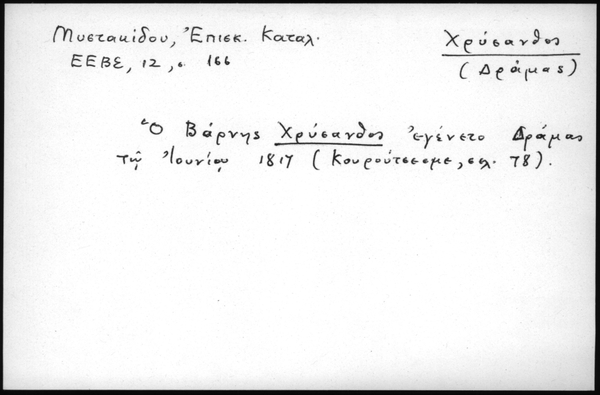 Μυστακίδου, Ἐπισκ. Καταλ.
ΕΕΒΣ, 12, σ. 166
Χρύσανθος
(Δράμας)
Ὁ Βάρνης Χρύσανθος ἐγένετο Δράμας
τῷ Ἰουνίῳ 1817 (Κουρούτσεσμε, σελ. 78).